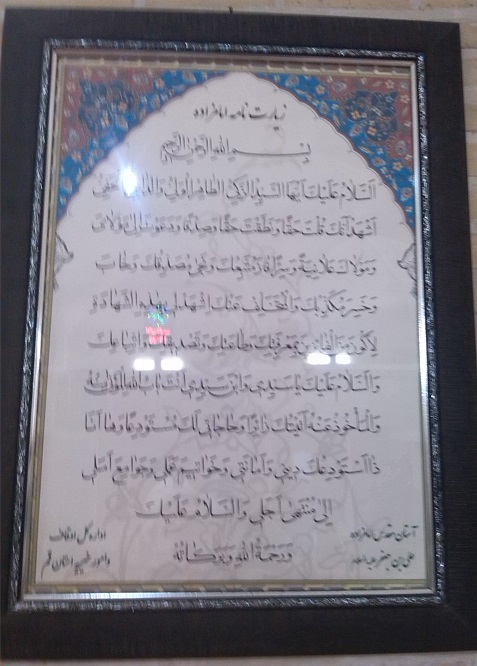 زیارت نامه امامزاده
بسم الله الرحمن الرحیم
اَلسَّلامُ عَلَيْكَ اَيُّهَا السَّيِّدُ الزَّكِيُّ الطّاهِرُ الْوَلِيُّ وَالدّاعِي الْحَفِيُّ
اَشْهَدُ اَنَّكَ قُلْتَ حَقّاً وَ نَطَقْتَ حَقّاً وَ صِدْقاً وَ دَعَوْتَ اِلى مَوْلايَ
وَ مَوْلاكَ عَلانِيَةً وَ سِرّاً فازَ مُتَّبِعُكَ وَ نَجى مُصَدِّقُكَ وَ خابَ
وَ خَسِرَ مُكَذِّبُكَ وَالْمُتَخَلِّفُ عَنْكَ اِشْهَدْ لي بِهذِهِ الشَّهادَةِ
لِاَكُونَ مِنَ الْفائِزينَ بِمَعْرِفَتِكَ وَ طاعَتِكَ وَ تَصْديقِكَ وَ اتِّباعِكَ
وَالسَّلامُ عَلَيْكَ يا سَيِّدي وَابْنَ سَيِّدي اَنْتَ بابُ اللهِ الْمُؤْتى مِنْهُ
وَالْمَأْخُوذُ عَنْهُ اَتَيْتُكَ زائِراً وَ حاجاتي لَكَ مُسْتَوْدِعاً وَ ها اَنَا
ذا اَسْتَوْدِعُكَ ديني وَ اَمانَتي وَ خَواتيمَ عَمَلي وَ جَوامِعَ اَمَلي
اِلى مُنْتَهى اَجَلي وَالسَّلامُ عَلَيْكَ
وَ رَحْمَةُ اللهِ وَ بَرَكاتُهُ
آستان مقدس امامزاده
علی بن جعفر علیه السلام
اداره کل اوقاف
وامور خیریه استان قم